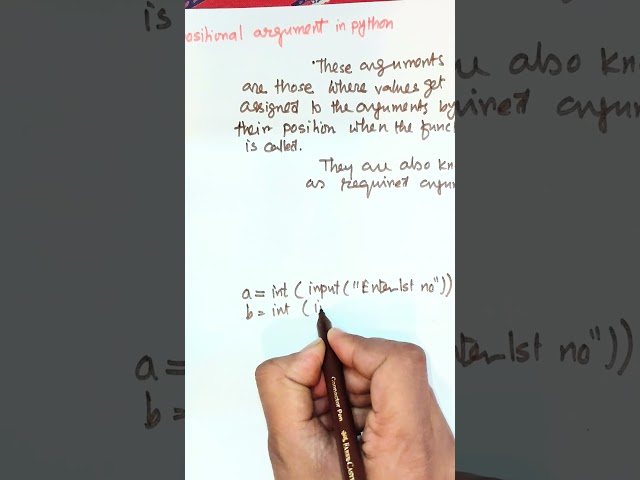 ositional argument in python
These arguments
are those where values get
assigned to the arguments by
their position when the func
is called.
They are also kn
as required argum
a = int ( input ("Enter 1st no"))
b = int ( i
Connector Pen
FABER-CASTELL
is
are also kno
uired argum
a =
b =
nter 1st no"))